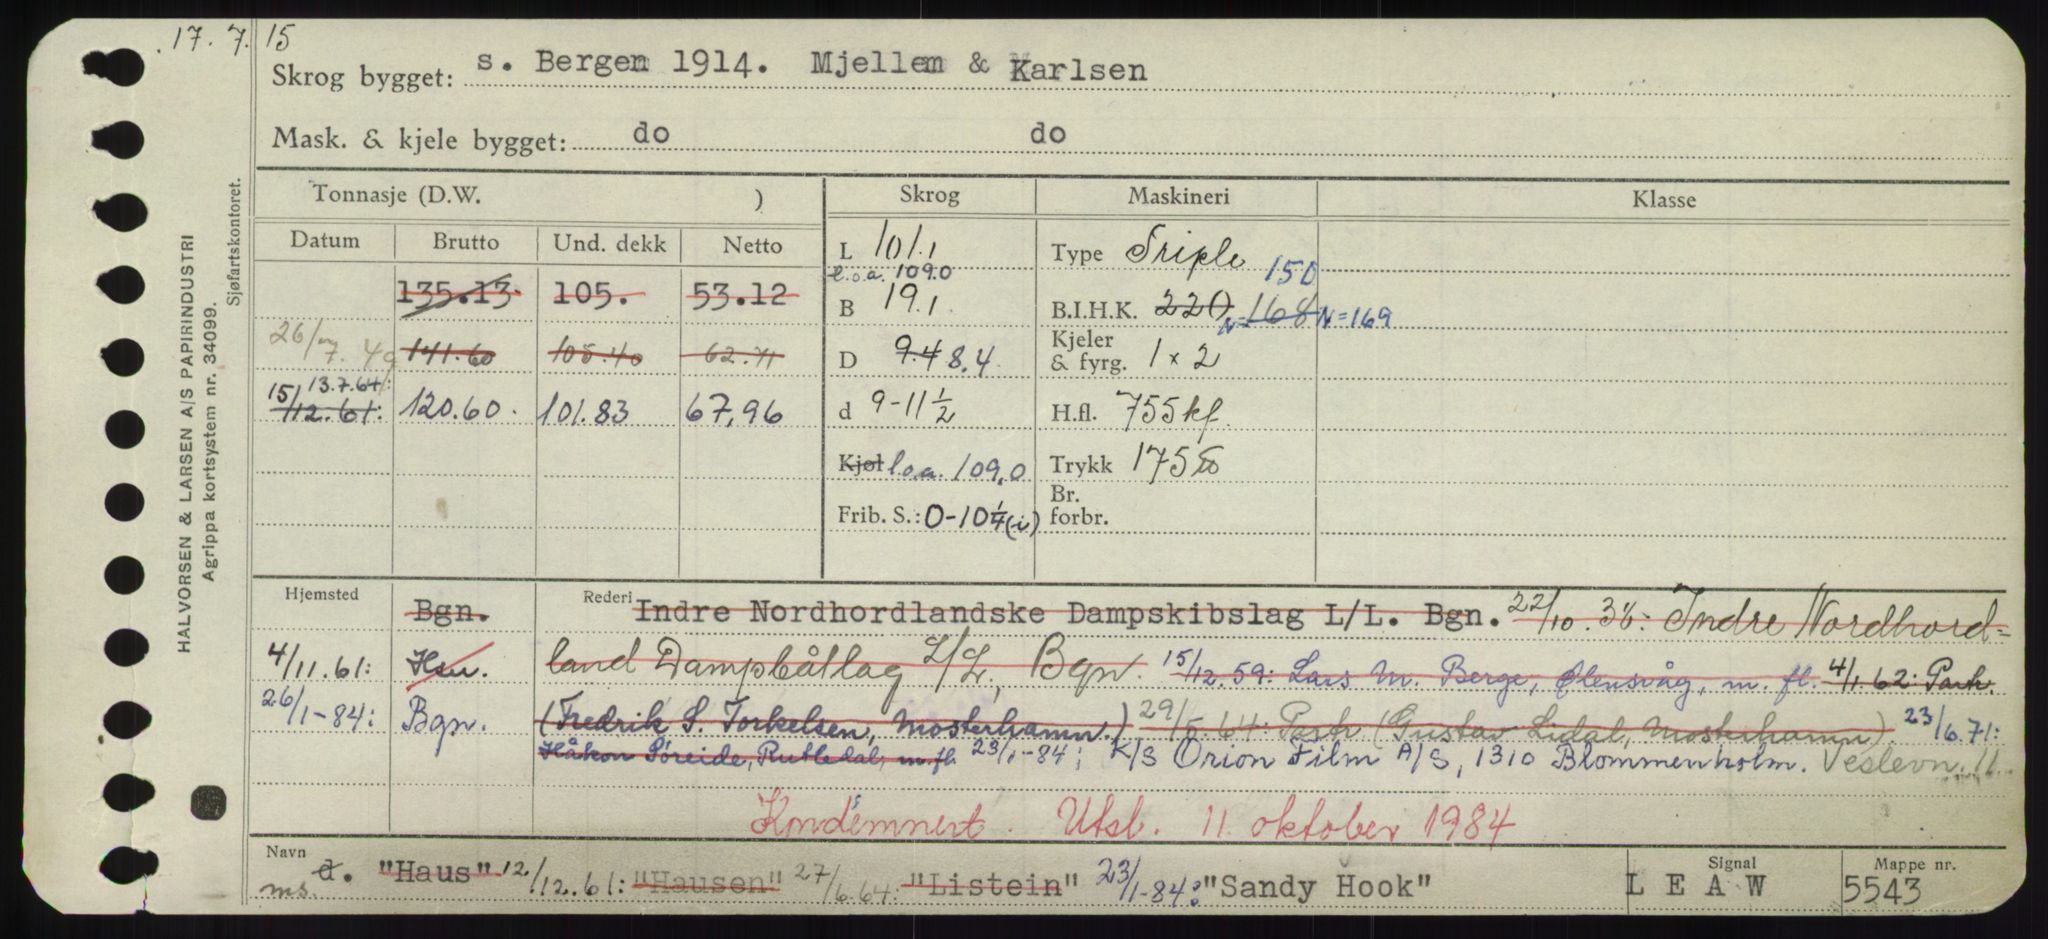 17.7.15
Skrog bygget: s. Bergen 1914. Mjellem & Karlsen
Mask. & kjele bygget: do do
HALVORSEN & LARSEN A/S PAPIRINDUSTRI
Agrippa kortsystem nr. 34099.
Sjøfartskontoret.
Tonnasje (D.W. ) Skrog Maskineri Klasse
Datum Brutto Und. dekk Netto
L 101.1 Type Triple
l.o.a. 109.0
135.13 105. 53.12
B 19.1 B.I.H.K. 220 N=168 150 N=169
26/7.49 141.60 105.40 62.71
D 9.4 8.4 Kjeler & fyrg. 1 x 2
15/12.61: 13.7.64: 120.60. 101.83 67,96
d 9-11 1/2 H.fl. 755 kf.
Kjøl l.o.a. 109,0 Trykk 175
Frib. S.: 0-10 1/4 (i) Br. forbr.
Hjemsted Bgn. Rederi Indre Nordhordlandske Dampskibslag L/L. Bgn. 22/10.38: Indre Nordhord=
4/11.61: Hsu. land Dampbåtlag L/L, Bgn. 15/12.59: Lars M. Berge, Ølensvåg, m. fl. 4/1.62: Partr.
26/1-84: Bgn. (Fredrik S. Torkelsen, Mosterhamn.) 29/5.64: Partr. (Gustav Lidal, Mosterhamn) 23/6.71:
Håkon Søreide, Rutledal, m. fl. 23/1-84: K/S Orion Film A/S, 1310 Blommenholm. Veslevn. 11.
Kondemnert. Utsl. 11. oktober 1984
Navn Signal Mappe nr.
d. ms. "Haus" 12/12.61: "Hausen" 27/6.64: "Listein" 23/1-84: "Sandy Hook" L E A W 5543